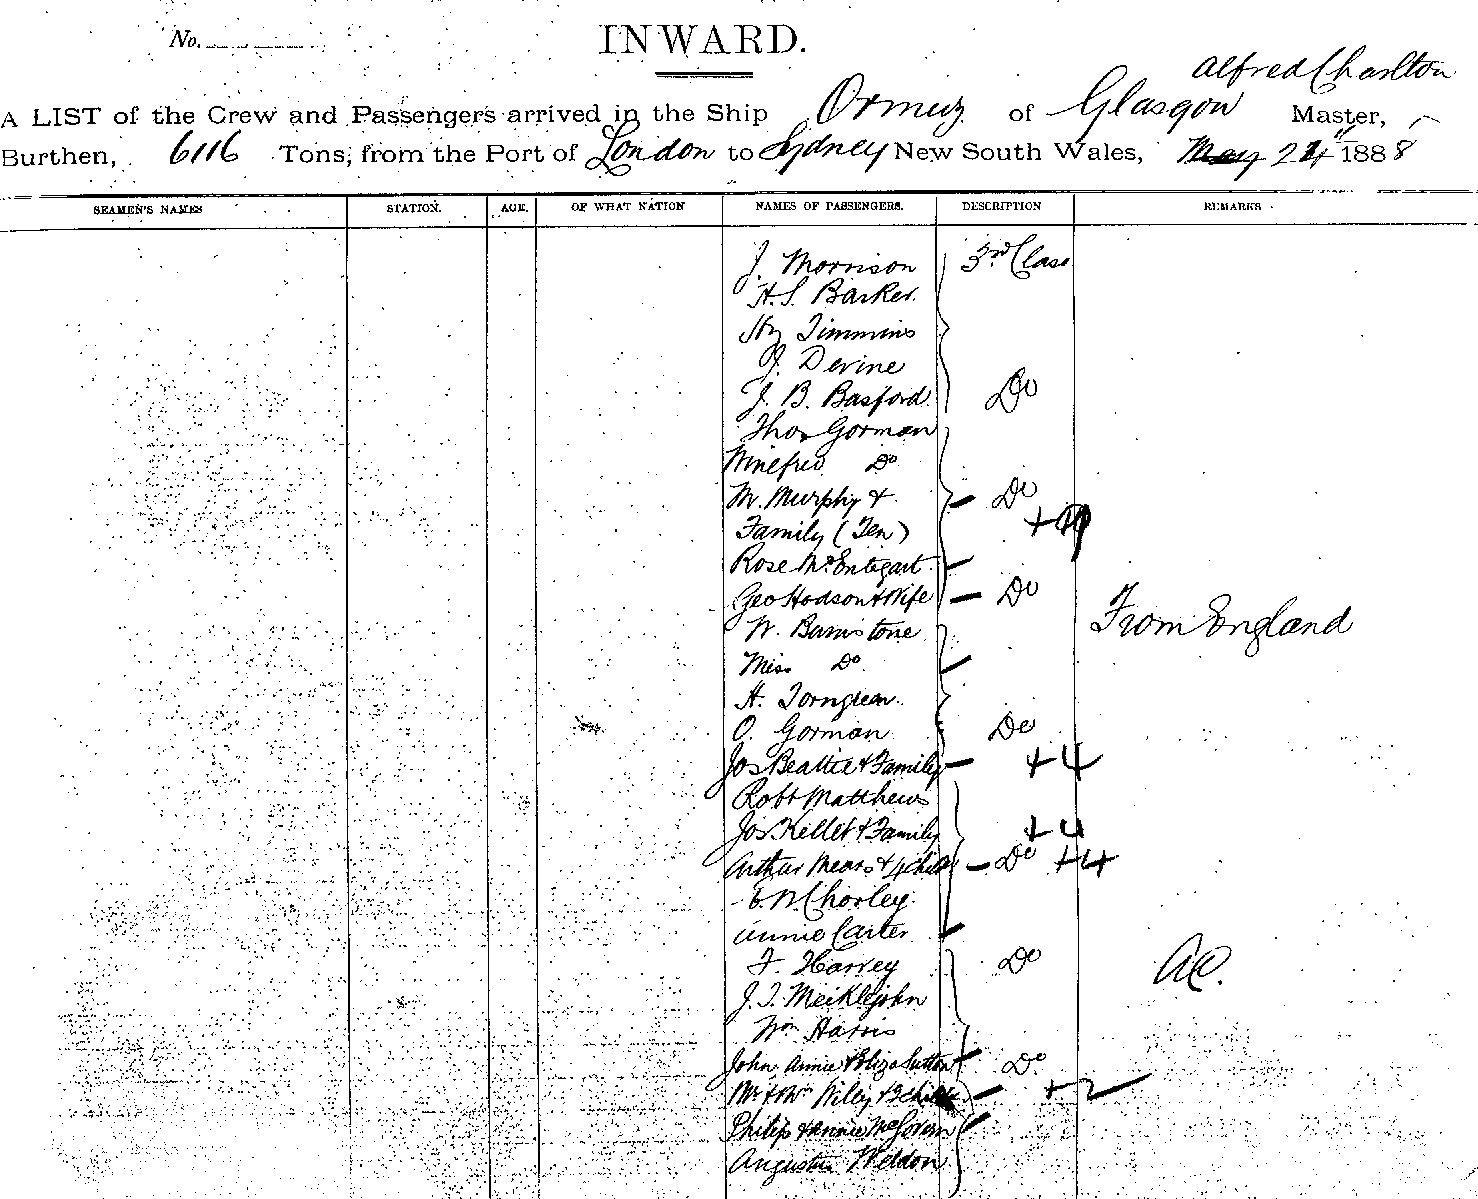 No.
INWARD.
Alfred Charlton
A LIST of the Crew and Passengers arrived in the Ship Ormuz of Glasgow Master,
Burthen, 6116 Tons, from the Port of London to Sydney New South Wales, May 24th 1888
SEAMEN'S NAMES STATION. AGE. OF WHAT NATION NAMES OF PASSENGERS. DESCRIPTION REMARKS
J. Morrison 3rd Class
H.S. Barker
Hy Timmins
J. Devine
J. B. Basford Do
Thos Gorman
Winefred Do
M. Murphy & Do
Family (Ten) +9
Rose McEntegart
Geo Hodson & Wife Do
From England
W. Barnstone
Miss Do
H. Torngren
O. Gorman Do
Jos Beattie & Family +4
Robt Matthews
Jos. Kellet & Family +4
Arthur Mears & 4 child Do +4
E. W. Chorley
Annie Carter
F. Harvey Do
AC.
J. T. Meiklejohn
Wm Harris
John, Annie & Eliza Sutton Do
Mr & Mrs Wiley & +2
Philip & Annie McGovern
Augustus Weldon